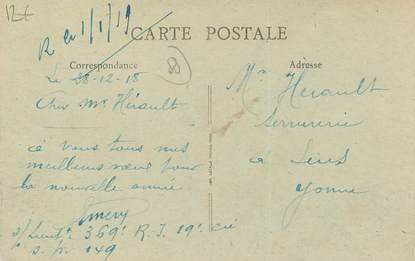 12€
R le 1/1/19
CARTE POSTALE
Correspondance
Adresse
Le 28-12-18
Cher Mr Hérault
à vous tous mes
meilleurs vœux pour
la nouvelle année
Mr Herault
Serrurerie
à Sens
Yonne
s/Lieut. 369e R.I. 19e Cie
s.p. 149